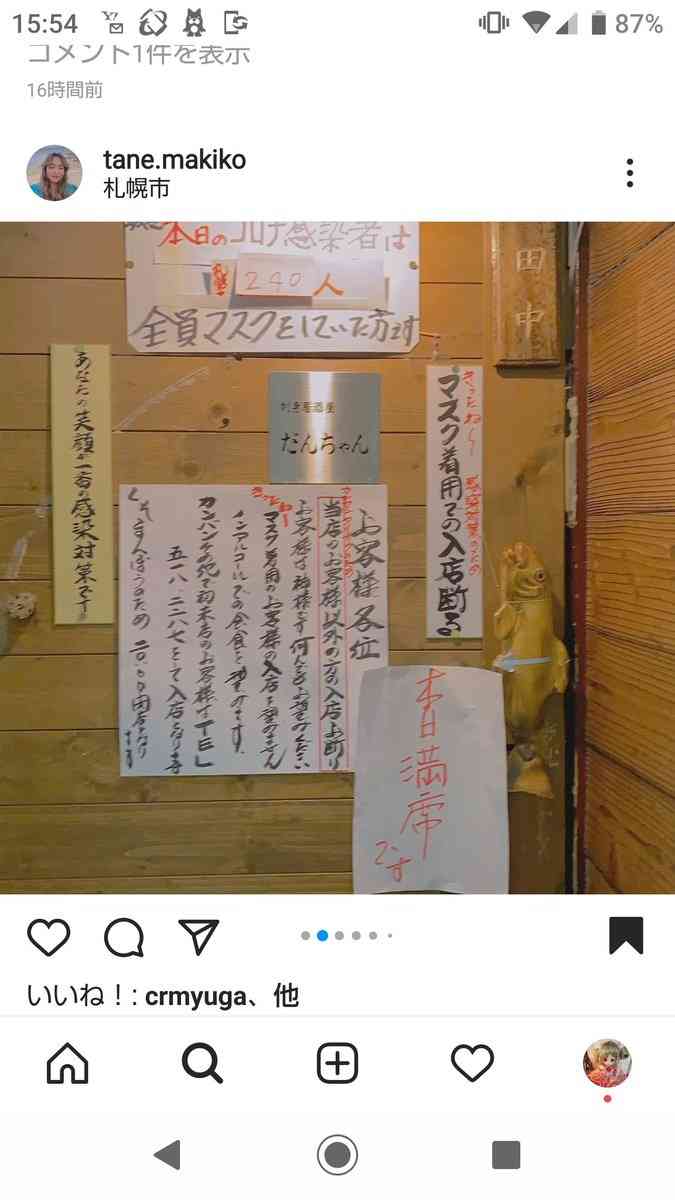 15:54
87%
コメント1件を表示
16時間前
tane.makiko
札幌市
本日のコロナ感染者は
240人
全員マスクをしていた方です
田中
刺身居酒屋
だんちゃん
マスク着用での入店断る
感染対策のため
あなたの笑顔が一番の感染対策です!!
お客様各位
当店のお客様以外の方の入店お断り
お客様は神様です何んでもお望みください
マスク着用のお客様の入店を望みません
ノンアルコールでの会食を望みます。
カンバンその他で初来店のお客様はTEL
まんぼうのため 二〇.〇〇閉店となり
本日満席です
いいね!: crmyuga、他